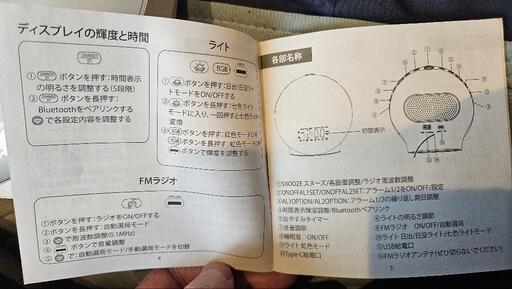 ディスプレイの輝度と時間
①ボタンを押す:時間表示
の明るさを調整する(5段階)
②ボタンを長押:
Bluetoothをペアリンクする
③で各設定内容を調整する
ライト
RGB
①ボタンを押す:日出/日没ライ
トモードをON/OFFする
②ボタンを長押す:七色ライ
トモードに入り、一回押すと七色ライト
変換
③ボタンを押す:虹色モードON
④ボタンを長押す:虹色モードOFF
⑤ボタンで輝度を調整する
FMラジオ
①ボタンを押す:ラジオをON/OFFする
②ボタンを長押す:自動選局モード
③で周波数調整(0.1MHz)
④ボタンで音量調整
⑤で:自動選局モード/手動選局モードを切替
4
各部名称
時間表示
①SNOOZE スヌーズ/各設置調整/ラジオ周波数調整
②ONOFFAL1SET/ONOFFAL2SET:アラーム1/2をON/OFF/設定
③AL1OPTION/AL2OPTION:アラーム1/2の繰り返し期日調整
④時間表示輝度調整/Bluetoothペアリンク
⑤おやすみタイマー
⑥ライトの明るさ調節
⑦音量調節
⑧FMラジオ ON/OFF/自動選局
⑨睡眠音 ON/OFF
⑩ライト 日出/日没ライト/七色ライトモード
⑪ライト 虹色モード
⑫USB給電口
⑬Type-C給電口
⑭FMラジオアンテナ(ぜひ切らないでください)
5